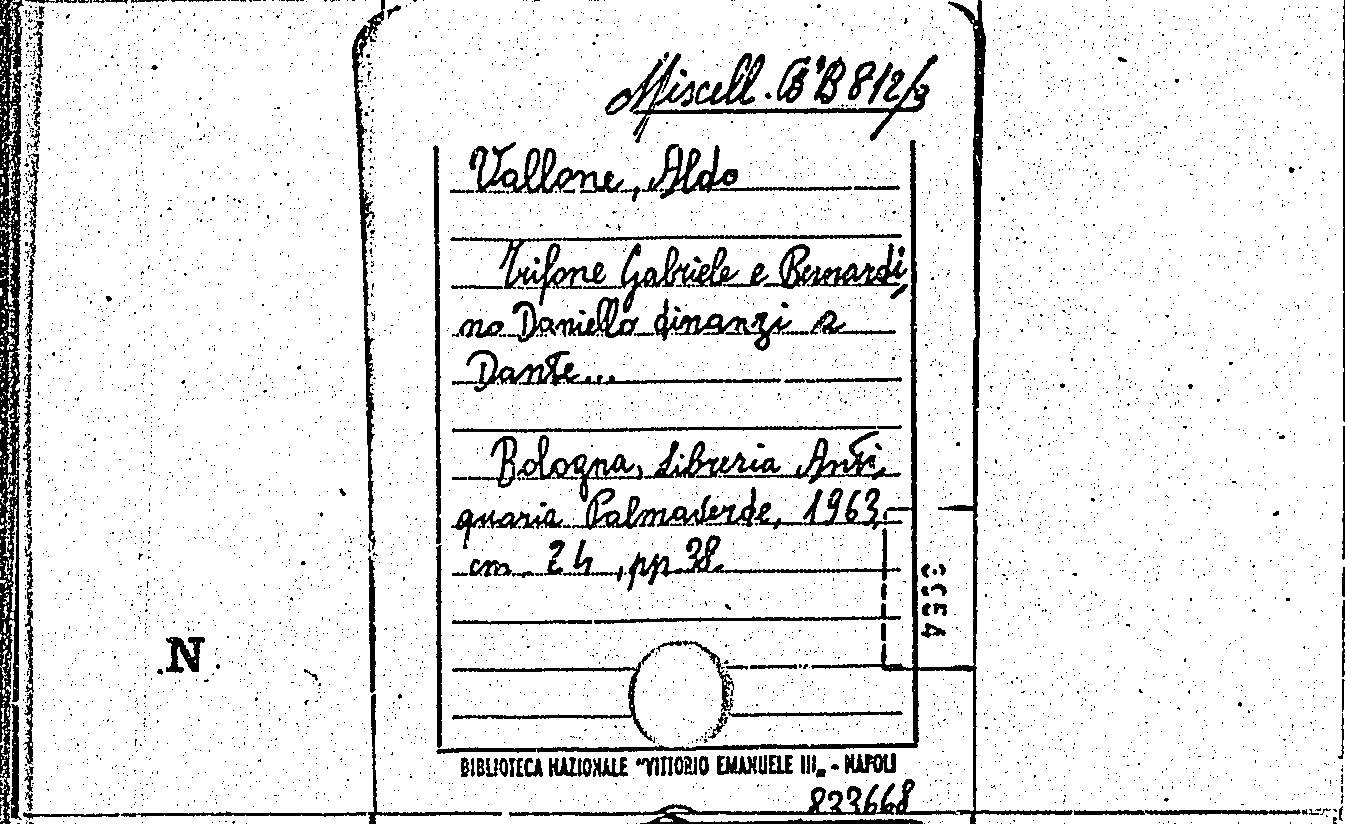 Miscell. B'B 812/9
Vallone, Aldo
Trifone Gabriele e Bernardi,
no Daniello dinanzi a
Dante...
Bologna, Libreria Anti,
quaria Palmaverde, 1963,
cm. 24, pp. 38.
N
BIBLIOTECA NAZIONALE "VITTORIO EMANUELE III„ - NAPOLI
833668